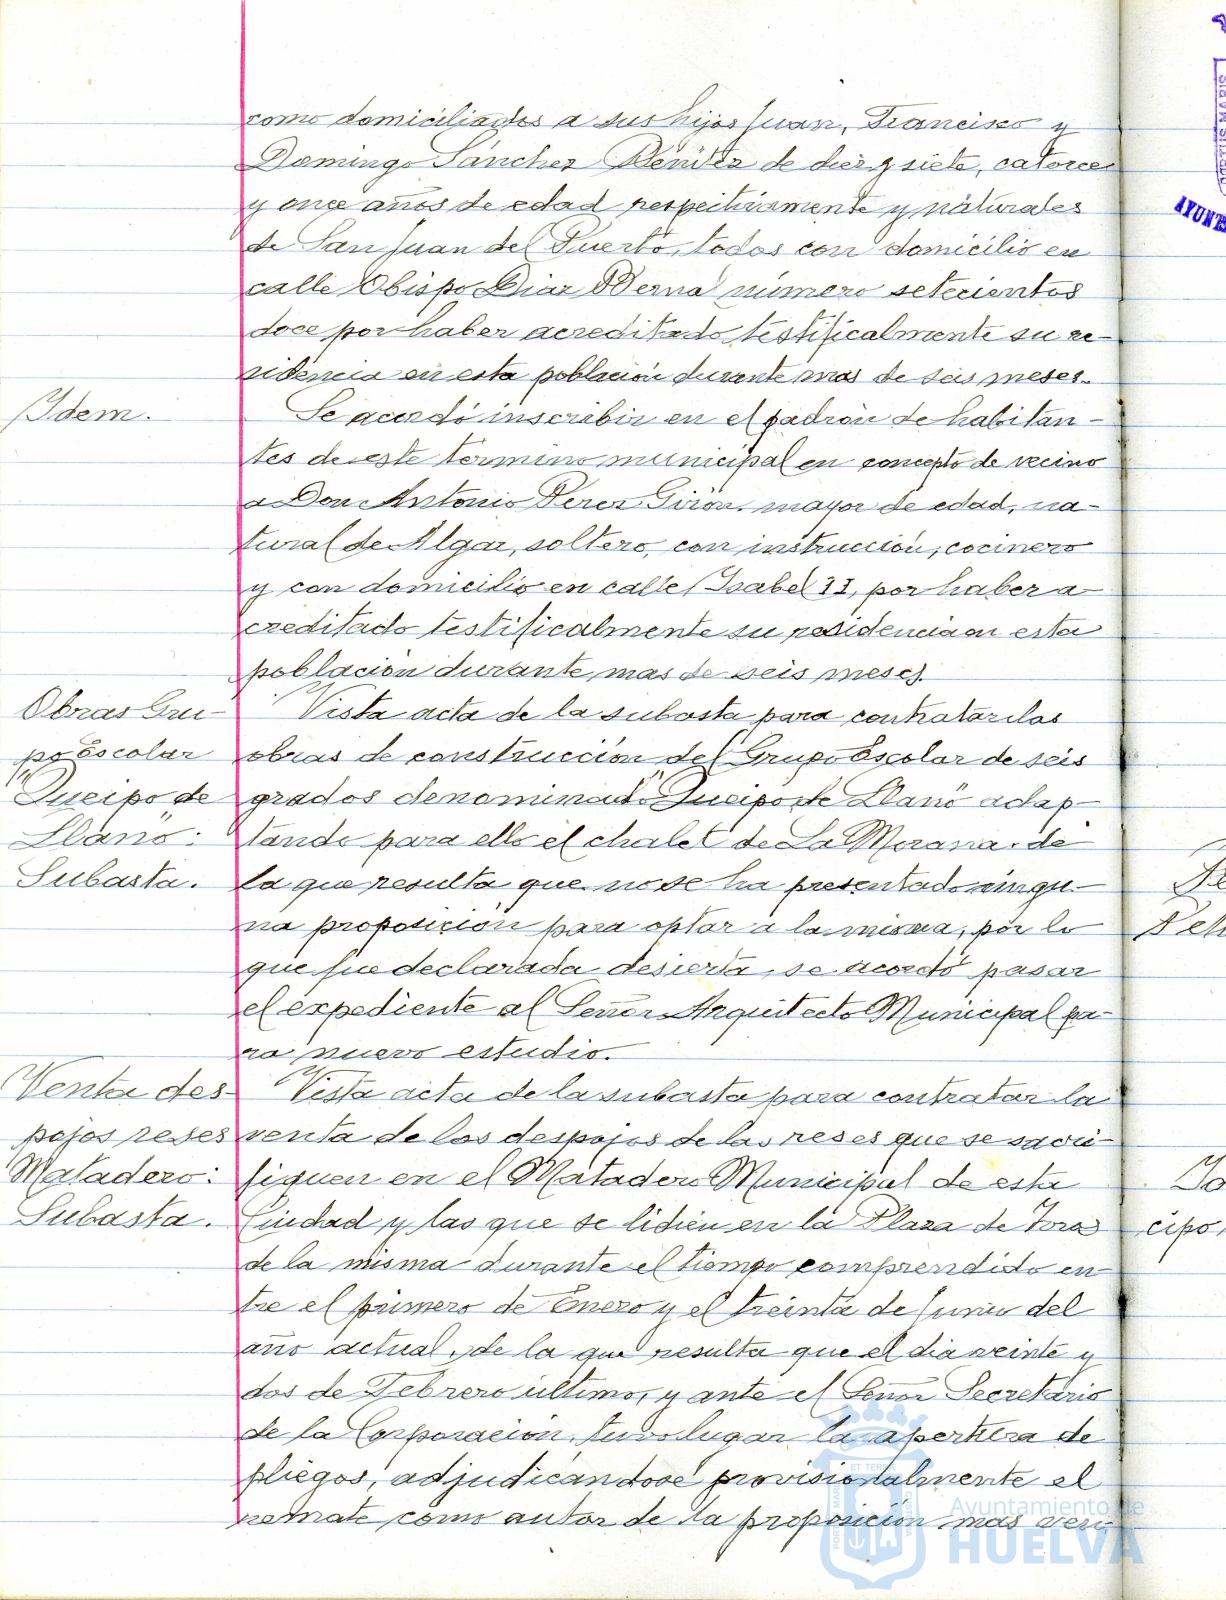 como domiciliados a sus hijos Juan, Francisco y
Domingo Sánchez Benítez de diez y siete, catorce
y once años de edad respectivamente y naturales
de San Juan del Puerto, todos con domicilio en
calle Obispo Diaz Bernal número setecientos
doce por haber acreditado testificalmente su re-
sidencia en esta población durante mas de seis meses.
Idem.
Se acordó inscribir en el padrón de habitan-
tes de este término municipal en concepto de vecino
a Don Antonio Perez Girón, mayor de edad, na-
tural de Algar, soltero, con instrucción, cocinero
y con domicilio en calle Isabel II, por haber a-
creditado testificalmente su residencia en esta
población durante mas de seis meses.
Obras Gru-
po Escolar
"Queipo de
Llano":
Subasta.
Vista acta de la subasta para contratar las
obras de construcción del Grupo Escolar de seis
grados denominado "Queipo de Llano" adap-
tando para ello el chalet de La Morana, de
la que resulta que no se ha presentado ningu-
na proposición para optar a la misma, por lo
que fue declarada desierta, se acordó pasar
el expediente al Señor Arquitecto Municipal pa-
ra nuevo estudio.
Venta des-
pojos reses
Matadero:
Subasta.
Vista acta de la subasta para contratar la
venta de los despojos de las reses que se sacri-
fiquen en el Matadero Municipal de esta
Ciudad y las que se lidien en la Plaza de Toros
de la misma durante el tiempo comprendido en-
tre el primero de Enero y el treinta de Junio del
año actual, de la que resulta que el dia veinte y
dos de Febrero último, y ante el Señor Secretario
de la Corporación, tuvo lugar la apertura de
pliegos, adjudicándose provisionalmente el
remate como autor de la proposición mas
cipo,
Ayuntamiento de
HUELVA